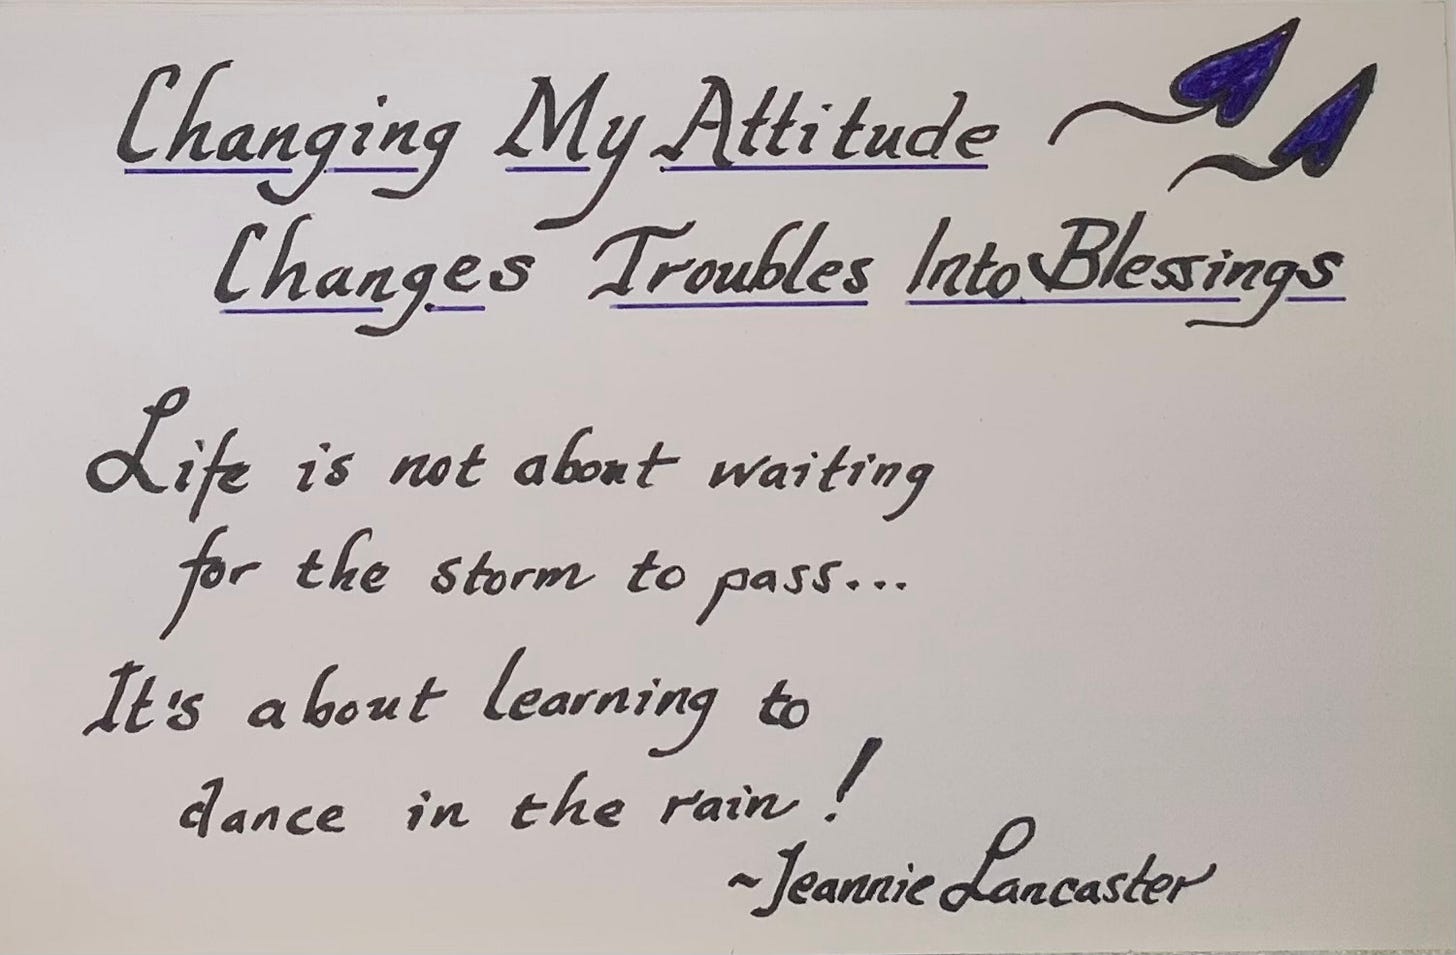 Changing My Attitude
Changes Troubles Into Blessings
Life is not about waiting
for the storm to pass...
It's about learning to
dance in the rain!
~Jeannie Lancaster